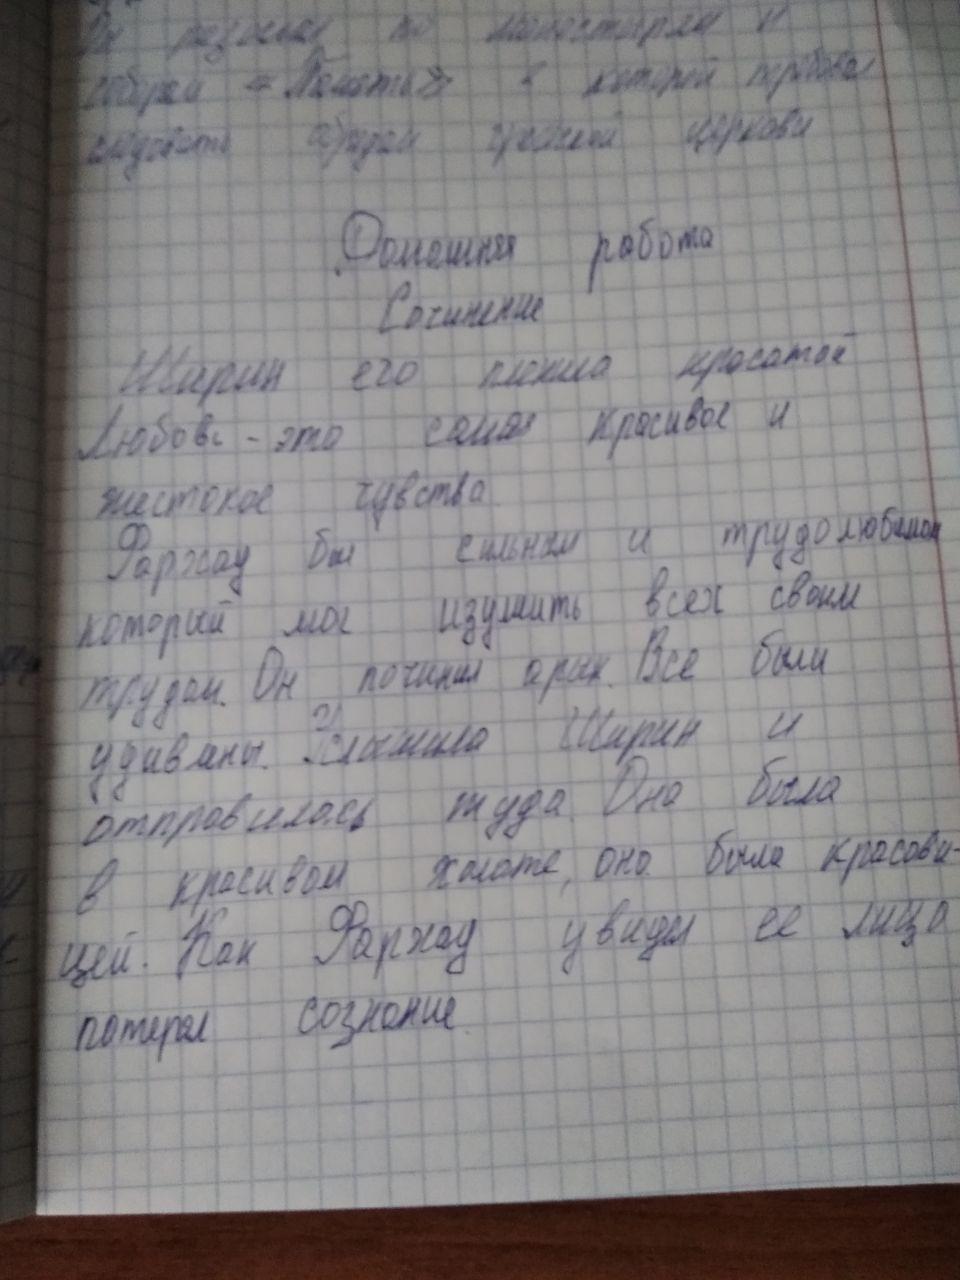 Он разослал по монастырям и
собрал «Память» в которой требовал
следовать обрядам греческой церкови
Домашняя работа
Сочинение
Ширин его пленила красатой
Любовь - это самая красивое и
жестокое чувства
Фархад был сильным и трудолюбимом
который мог изумить всех своим
трудом. Он починил арык. Все были
удивлены. Услышила Ширин и
отправилась туда Она была
в красивом халате, она была красови-
цей. Как Фархад увидел её лицо
патерял сознание.